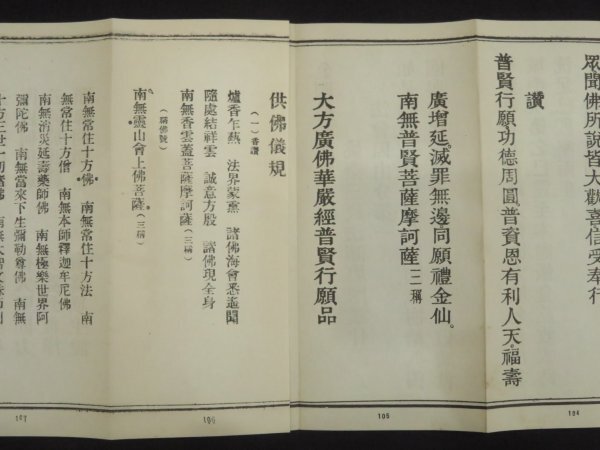 眾聞佛所說皆大歡喜信受奉行
讚
普賢行願。功德周圓。普資恩有利人天。福壽
廣增延。滅罪無邊。同願禮金仙。
南無普賢菩薩摩訶薩三稱
大方廣佛華嚴經普賢行願品
104
105
供佛儀規
(一)香讚
爐香乍熱 法界蒙熏 諸佛海會悉遙聞
隨處結祥雲 誠意方殷 諸佛現全身
南無香雲蓋菩薩摩訶薩(三稱)
(稱佛號)
南無靈山會上佛菩薩。(三稱)
106
南無常住十方佛。 南無常住十方法 南
無常住十方僧 南無本師釋迦牟尼佛
南無消災延壽藥師佛 南無極樂世界阿
彌陀佛 南無當來下生彌勒尊佛 南無
十方三世一切諸佛
107